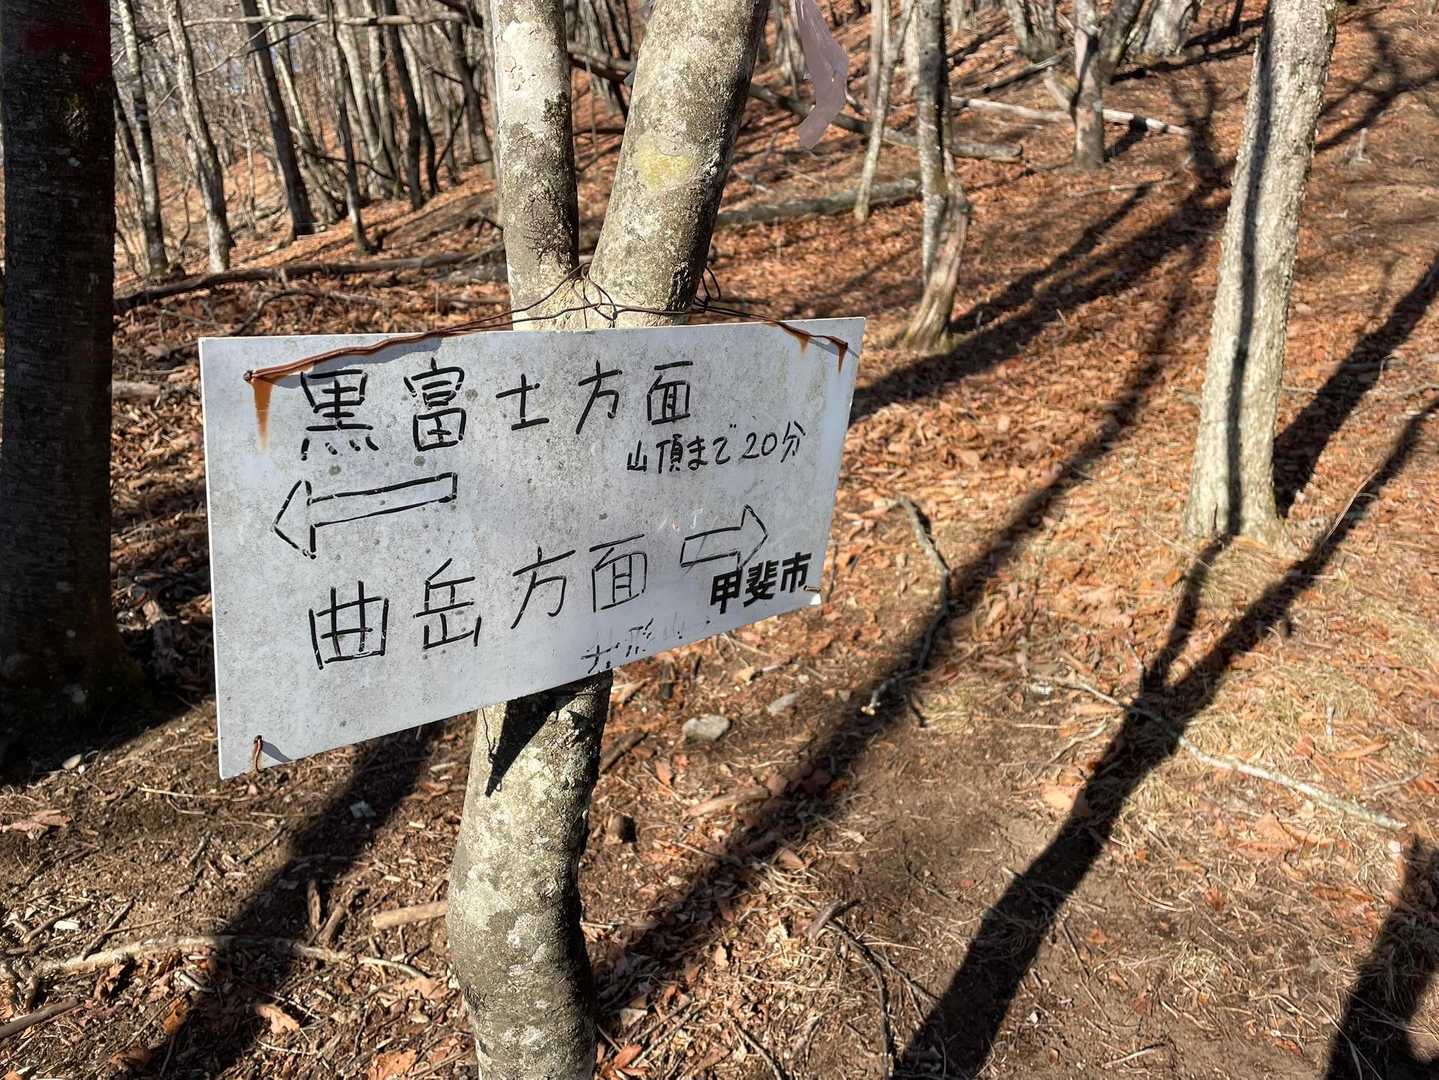 黒富士方面
山頂まで20分
曲岳方面
甲斐市